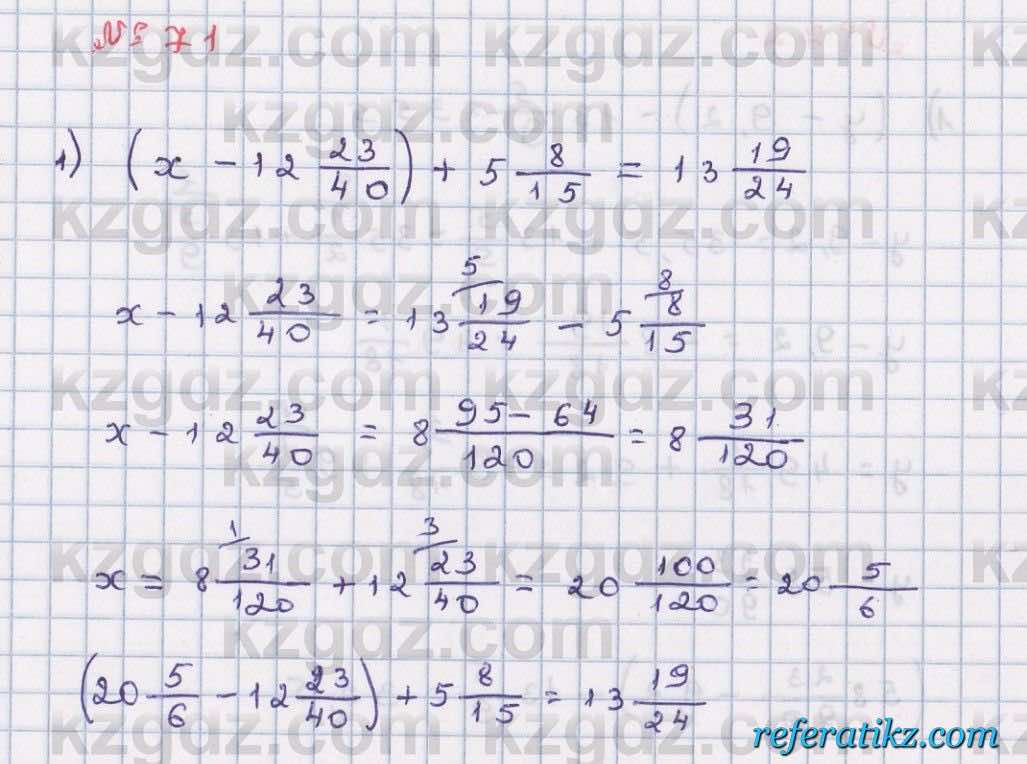 № 71
1) (x - 12 23/40) + 5 8/15 = 13 19/24
x - 12 23/40 = 13 19/24 (5) - 5 8/15 (8)
x - 12 23/40 = 8 (95 - 64)/120 = 8 31/120
x = 8 31/120 (1) + 12 23/40 (3) = 20 100/120 = 20 5/6
(20 5/6 - 12 23/40) + 5 8/15 = 13 19/24
kzgdz.com
referatikz.com